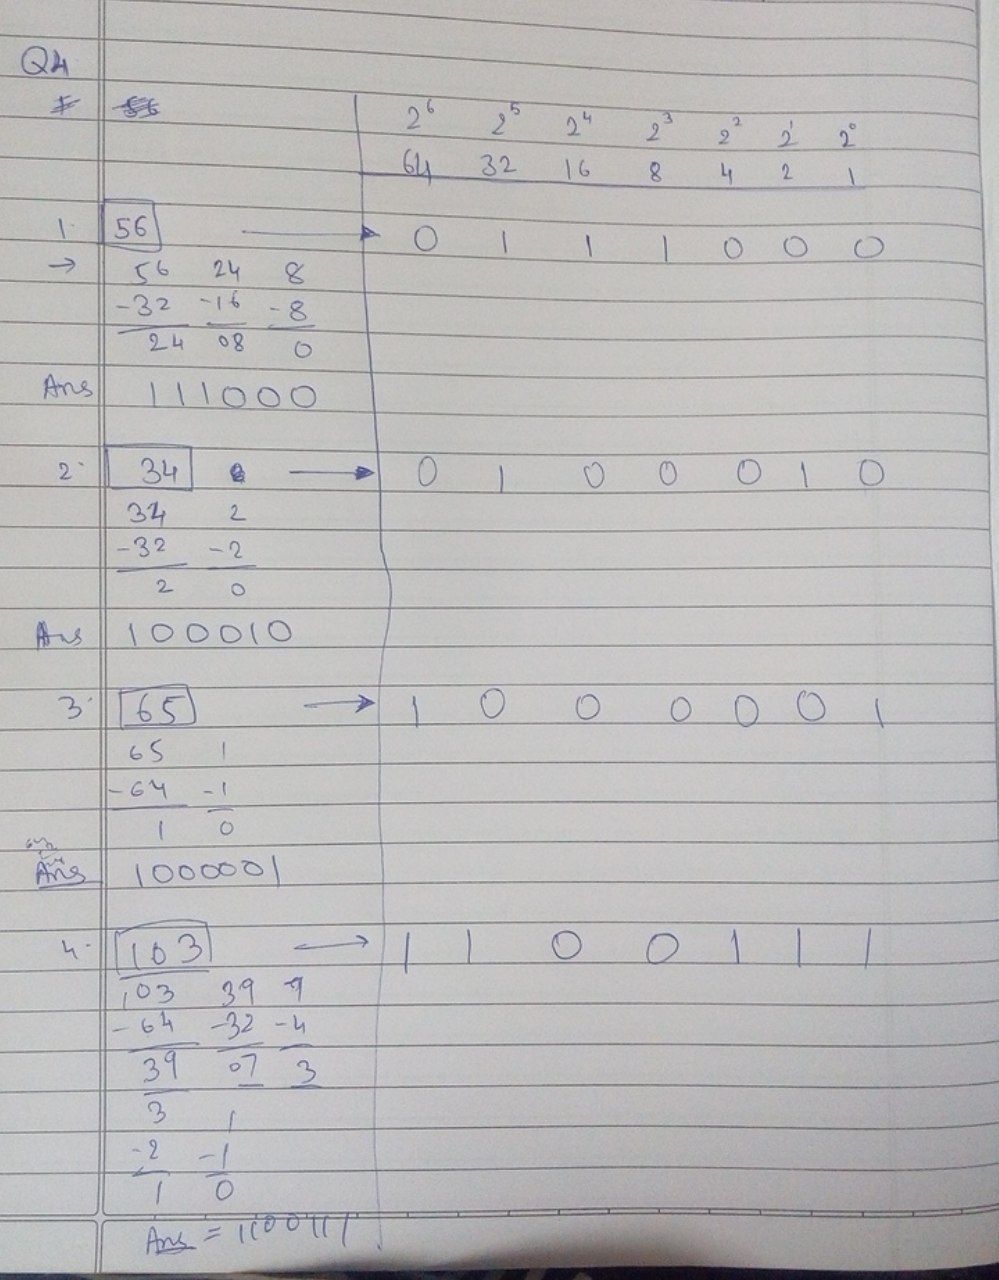 Q4
2⁶ 2⁵ 2⁴ 2³ 2² 2¹ 2⁰
64 32 16 8 4 2 1
1. 56 → 0 1 1 1 0 0 0
→ 56 24 8
-32 -16 -8
24 08 0
Ans 111000
2. 34 → 0 1 0 0 0 1 0
34 2
-32 -2
2 0
Ans 100010
3. 65 → 1 0 0 0 0 0 1
65 1
-64 -1
1 0
Ans 1000001
4. 103 → 1 1 0 0 1 1 1
103 39 7
-64 -32 -4
39 07 3
3 1
-2 -1
1 0
Ans = 1100111